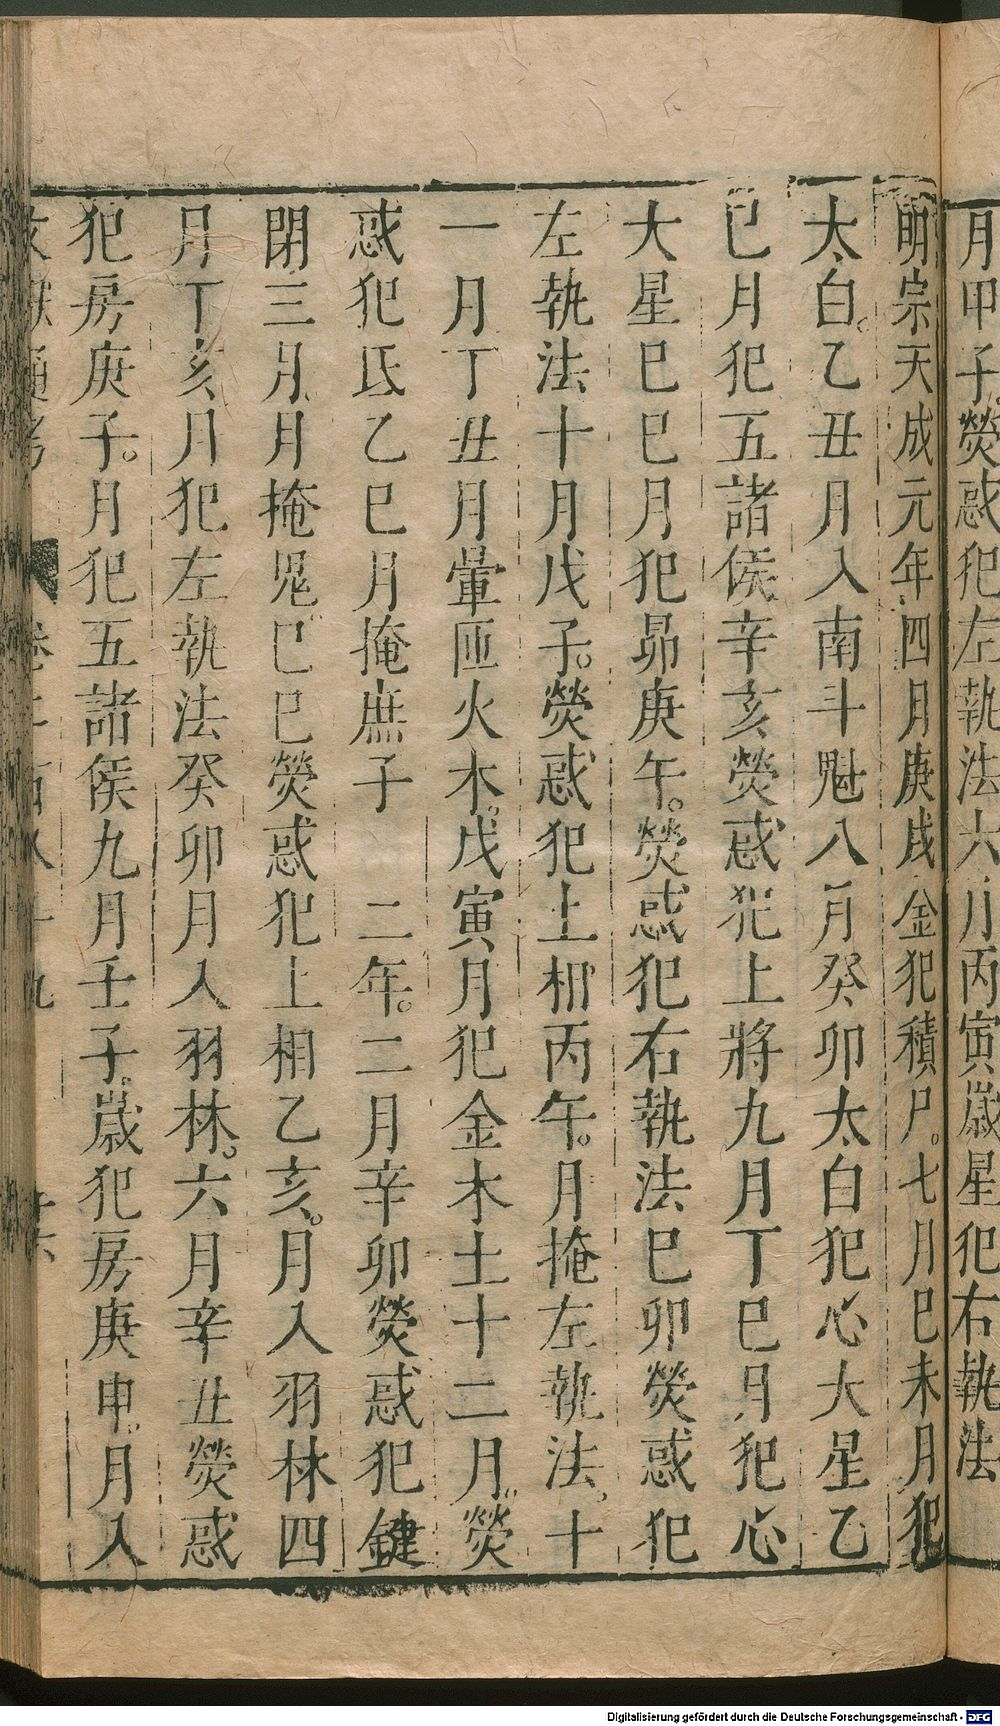 月甲子熒惑犯左執法六月丙寅歲星犯右執法
明宗天成元年四月庚戌金犯積尸。七月巳未月犯
太白。乙丑月入南斗魁八月癸卯太白犯心大星乙
巳月犯五諸侯辛亥熒惑犯上將九月丁巳月犯心
大星巳巳月犯昴庚午。熒惑犯右執法巳卯熒惑犯
左執法十月戊子。熒惑犯土相丙午。月掩左執法十
一月丁丑月暈匝火木。戊寅月犯金木土十二月。熒
惑犯氐乙巳月掩庶子 二年。二月辛卯熒惑犯鍵
閉三月月掩鬼巳巳熒惑犯上相乙亥。月入羽林四
月丁亥月犯左執法癸卯月入羽林。六月辛丑熒惑
犯房庚子。月犯五諸侯九月壬子歲犯房庚申月入
文獻通考 卷二百八十九
Digitalisierung gefördert durch die Deutsche Forschungsgemeinschaft - DFG